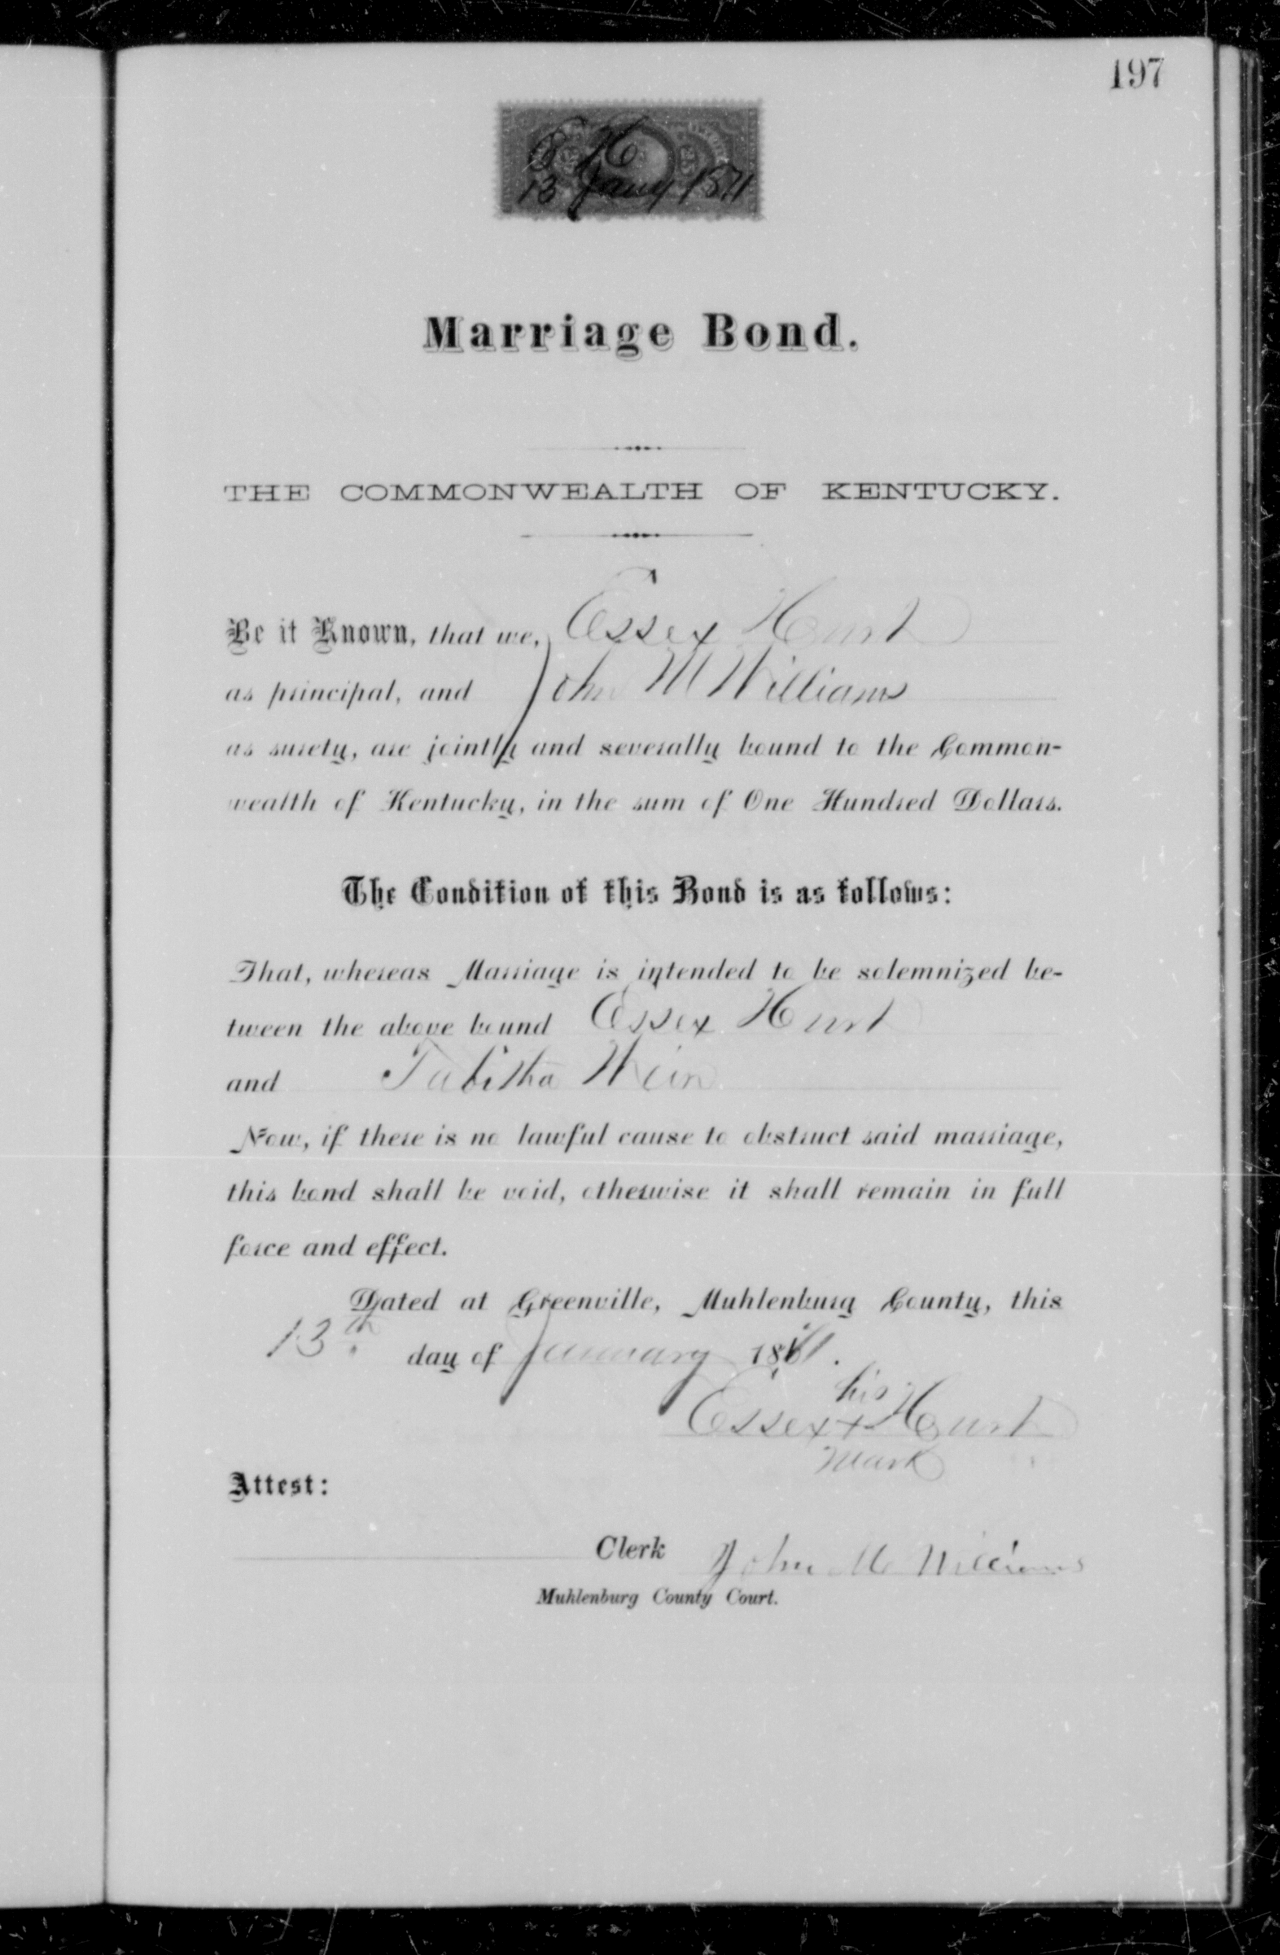 197
E H
13 Jany 1871
Marriage Bond.
THE COMMONWEALTH OF KENTUCKY.
Be it Known, that we, Essex Hurt
as principal, and John M Williams
as surety, are jointly and severally bound to the Common-
wealth of Kentucky, in the sum of One Hundred Dollars.
The Condition of this Bond is as follows:
That, whereas Marriage is intended to be solemnized be-
tween the above bound Essex Hurt
and Tabitha Weir
Now, if there is no lawful cause to obstruct said marriage,
this bond shall be void, otherwise it shall remain in full
force and effect.
Dated at Greenville, Muhlenburg County, this
13th day of January 1871.
his
Essex + Hurt
mark
Attest:
Clerk John M Williams
Muhlenburg County Court.